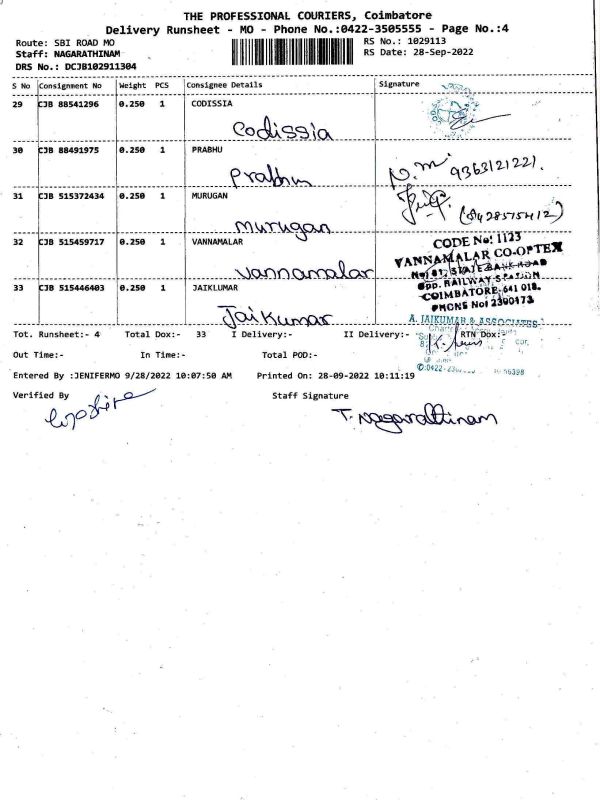 THE PROFESSIONAL COURIERS, Coimbatore
Delivery Runsheet - MO - Phone No.:0422-3505555 - Page No.:4
Route: SBI ROAD MO
Staff: NAGARATHINAM
DRS No.: DCJB102911304
RS No.: 1029113
RS Date: 28-Sep-2022
S No Consignment No Weight PCS Consignee Details Signature
29 CJB 88541296 0.250 1 CODISSIA
Codissia
30 CJB 88491975 0.250 1 PRABHU
Prabhu N.m 9363121221.
31 CJB 515372434 0.250 1 MURUGAN
Murugan (8428575412)
32 CJB 515459717 0.250 1 VANNAMALAR
Vannamalar
CODE No: 1123
VANNAMALAR CO-OPTEX
No: 81, STATE BANK ROAD
Opp. RAILWAY STATION
COIMBATORE-641 018.
PHONE No: 2300173
33 CJB 515446403 0.250 1 JAIKLUMAR
Jaikumar
A. JAIKUMAR & ASSOCIATES
Tot. Runsheet:- 4 Total Dox:- 33 I Delivery:- II Delivery:- RTN Dox:-
Out Time:- In Time:- Total POD:-
Entered By :JENIFERMO 9/28/2022 10:07:50 AM Printed On: 28-09-2022 10:11:19
Verified By Staff Signature
T. Nagarathinam